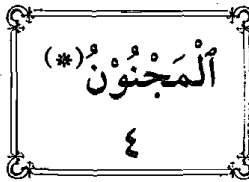 اَلْمَجْنُوْنُ (*)
٤